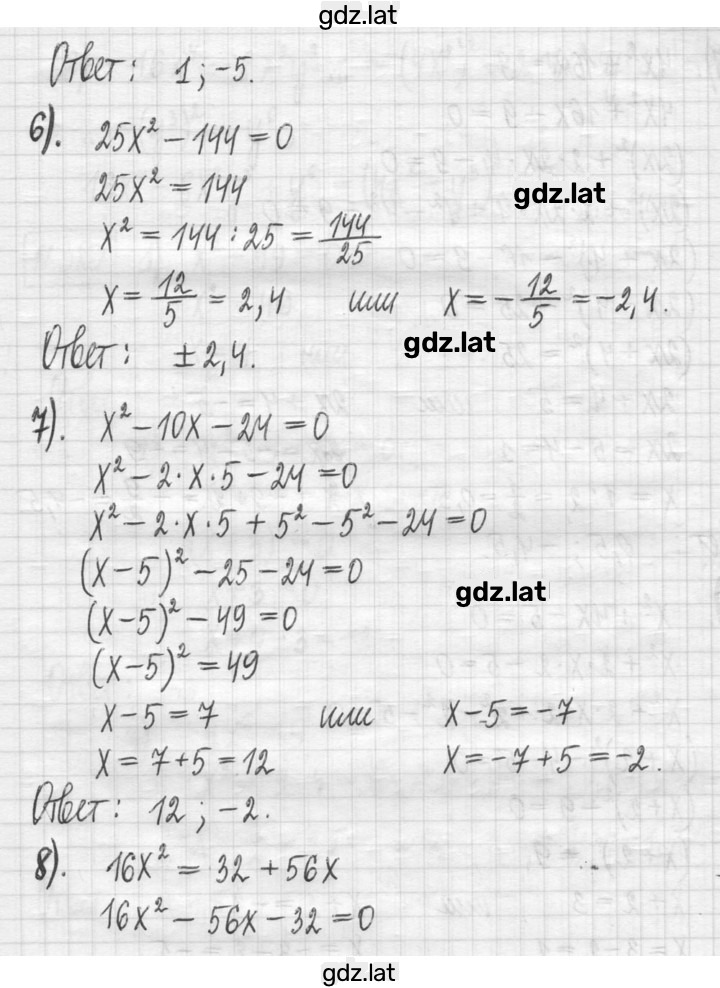 gdz.lat
Ответ: 1; -5.
6). 25x² - 144 = 0
25x² = 144
gdz.lat
x² = 144 : 25 = 144/25
x = 12/5 = 2,4 или x = -12/5 = -2,4.
gdz.lat
Ответ: ±2,4.
7). x² - 10x - 24 = 0
x² - 2·x·5 - 24 = 0
x² - 2·x·5 + 5² - 5² - 24 = 0
(x-5)² - 25 - 24 = 0
gdz.lat
(x-5)² - 49 = 0
(x-5)² = 49
x - 5 = 7 или x - 5 = -7
x = 7+5 = 12 x = -7+5 = -2.
Ответ: 12; -2.
8). 16x² = 32 + 56x
16x² - 56x - 32 = 0
gdz.lat